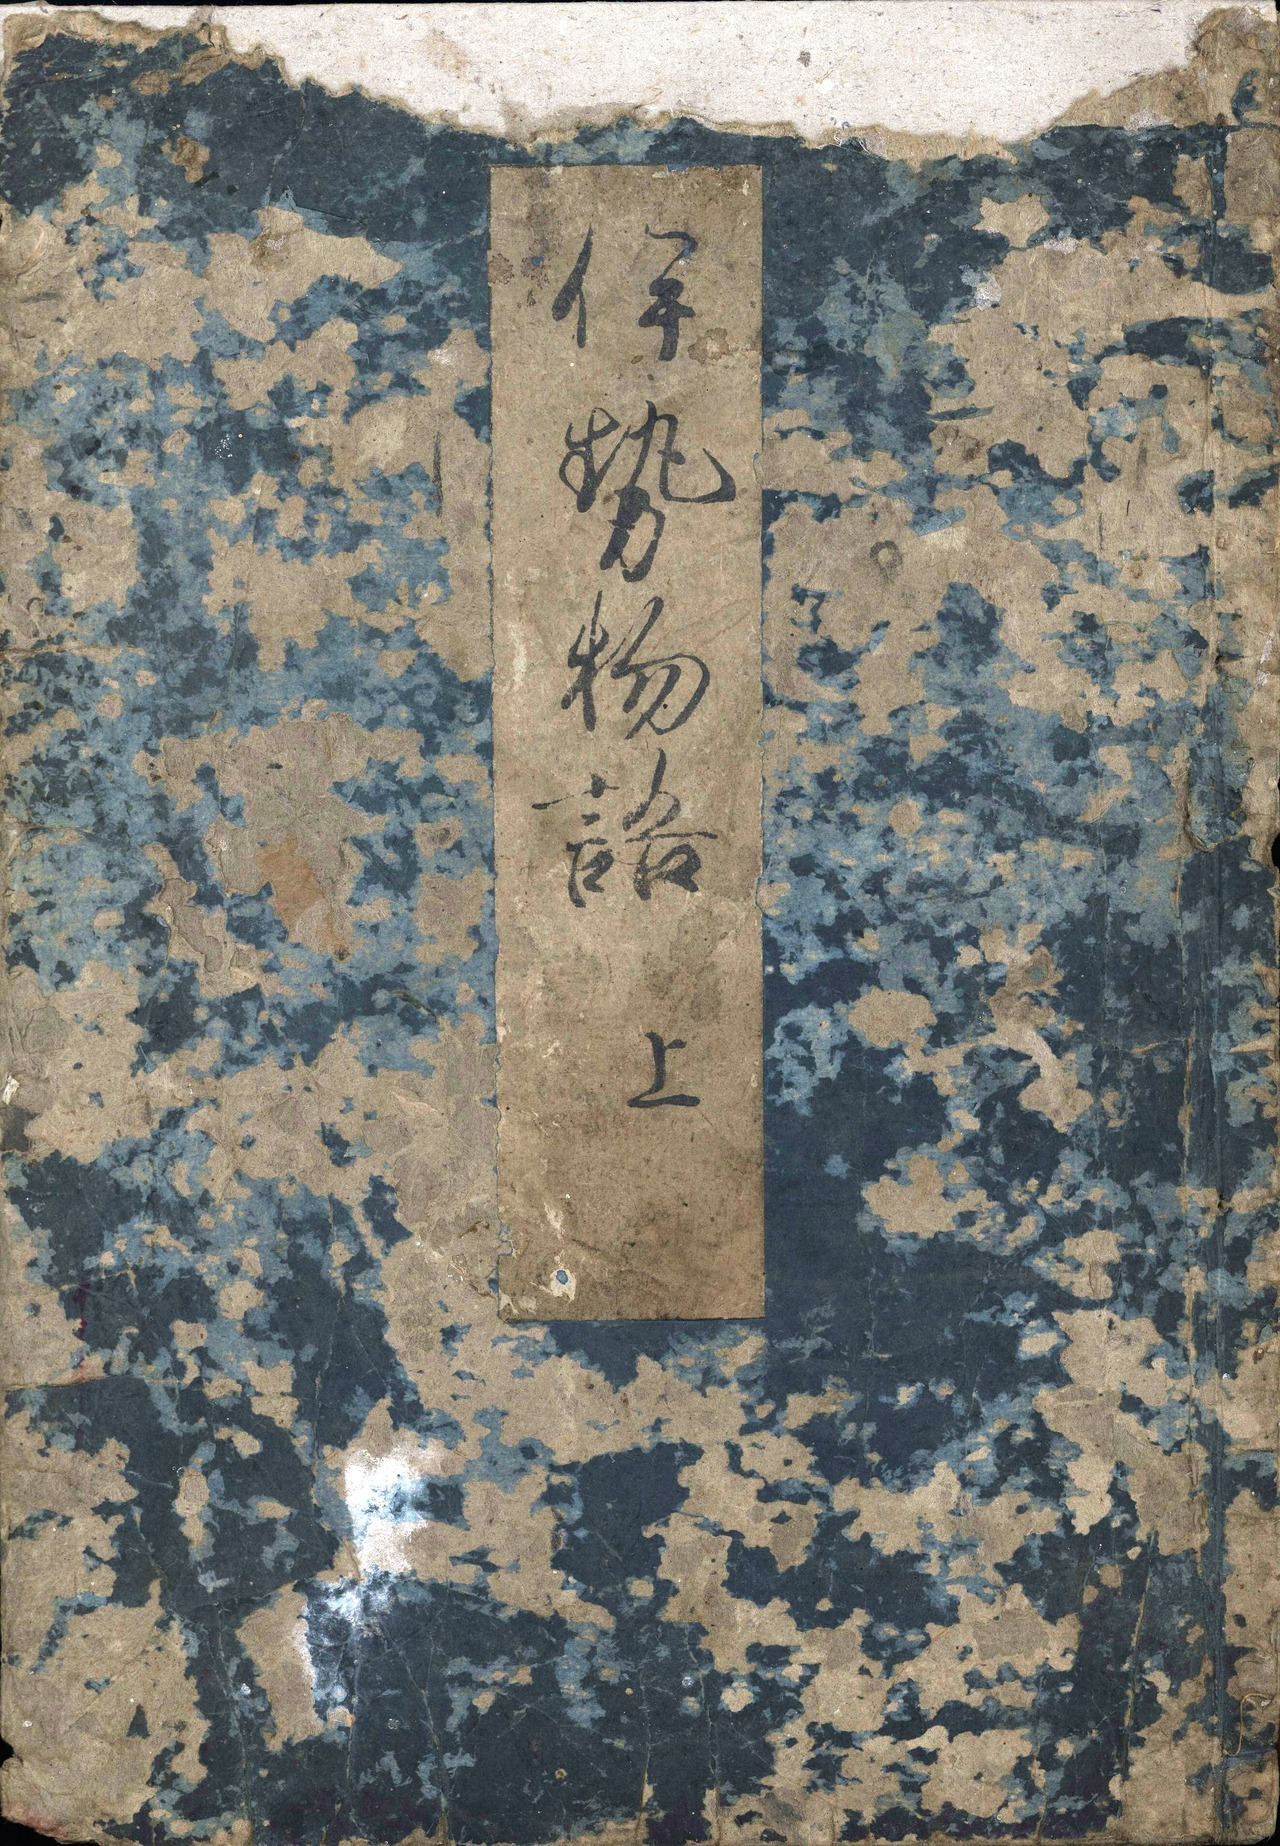 伊勢物語 上